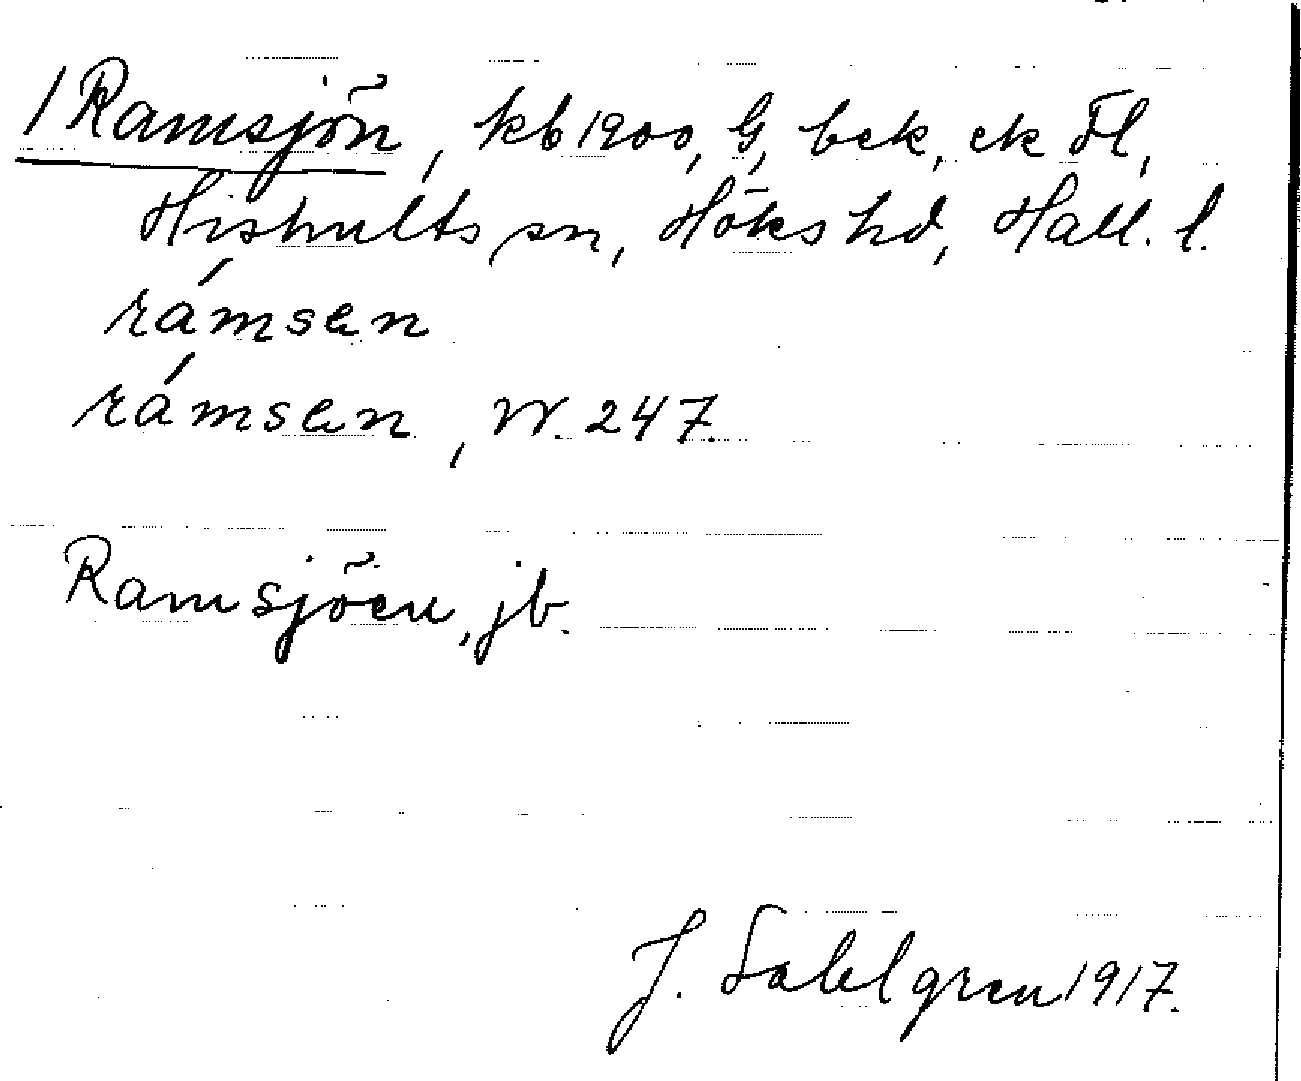 / Ramsjön, kb 1900, G, bek, ek Fl,
Hishults sn, Höks hd, Hall. l.
rámsen
rámsen, W. 247.
Ramsjöen, jb.
J. Sahlgren 1917.